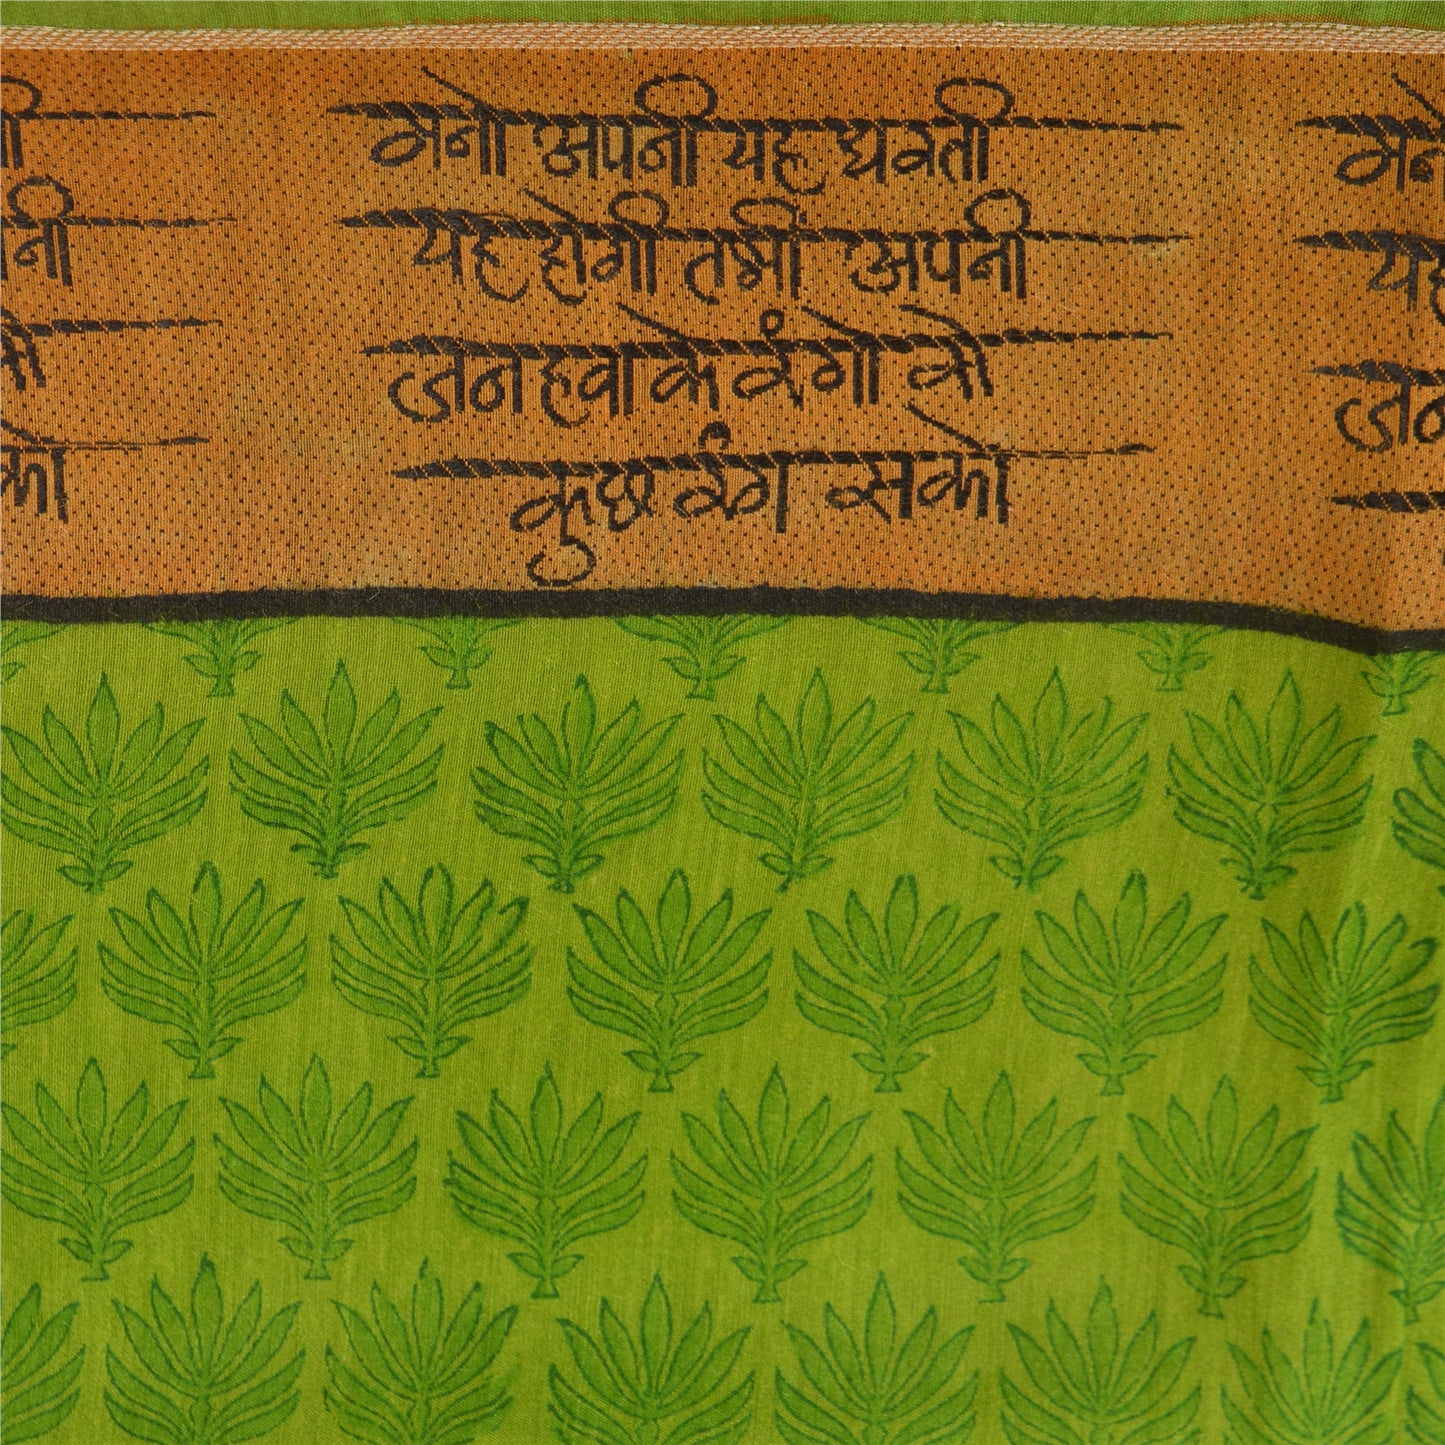 मनो अपनी यह धरती
यह होगी तभी अपनी
जन हवा के रंगो को
कुछ रंग सको